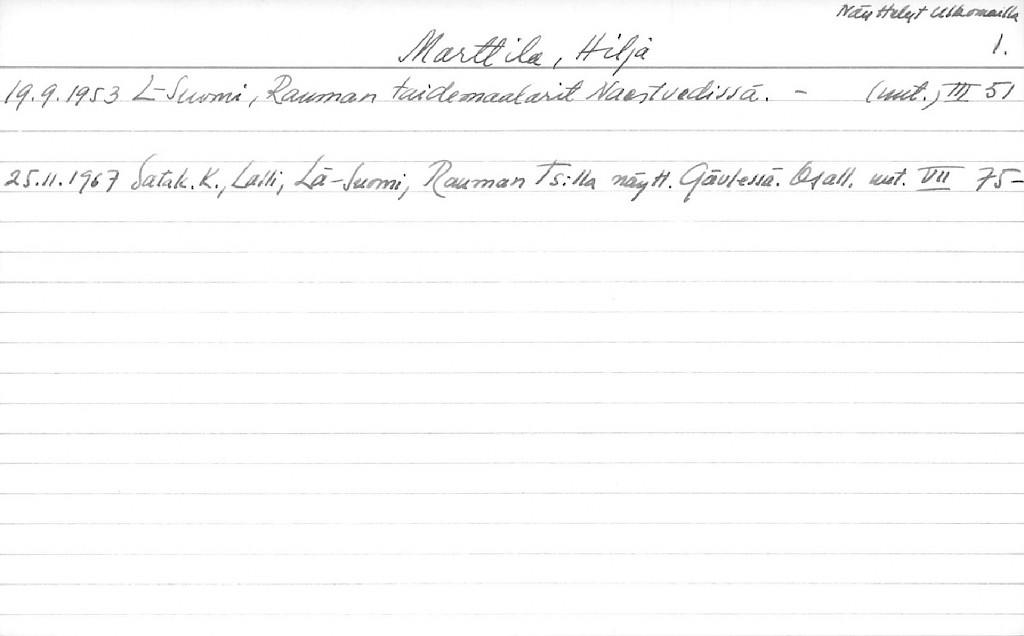 Näyttelyt ulkomailla
Marttila, Hilja 1.
19.9.1953 L-Suomi, Rauman taidemaalarit Naestvedissä. - (mt.) III 51
25.11.1967 Satak. K., Lalli, Lä-Suomi, Rauman Ts:lla näytt. Gävlessä. Osall. mt. VII 75-